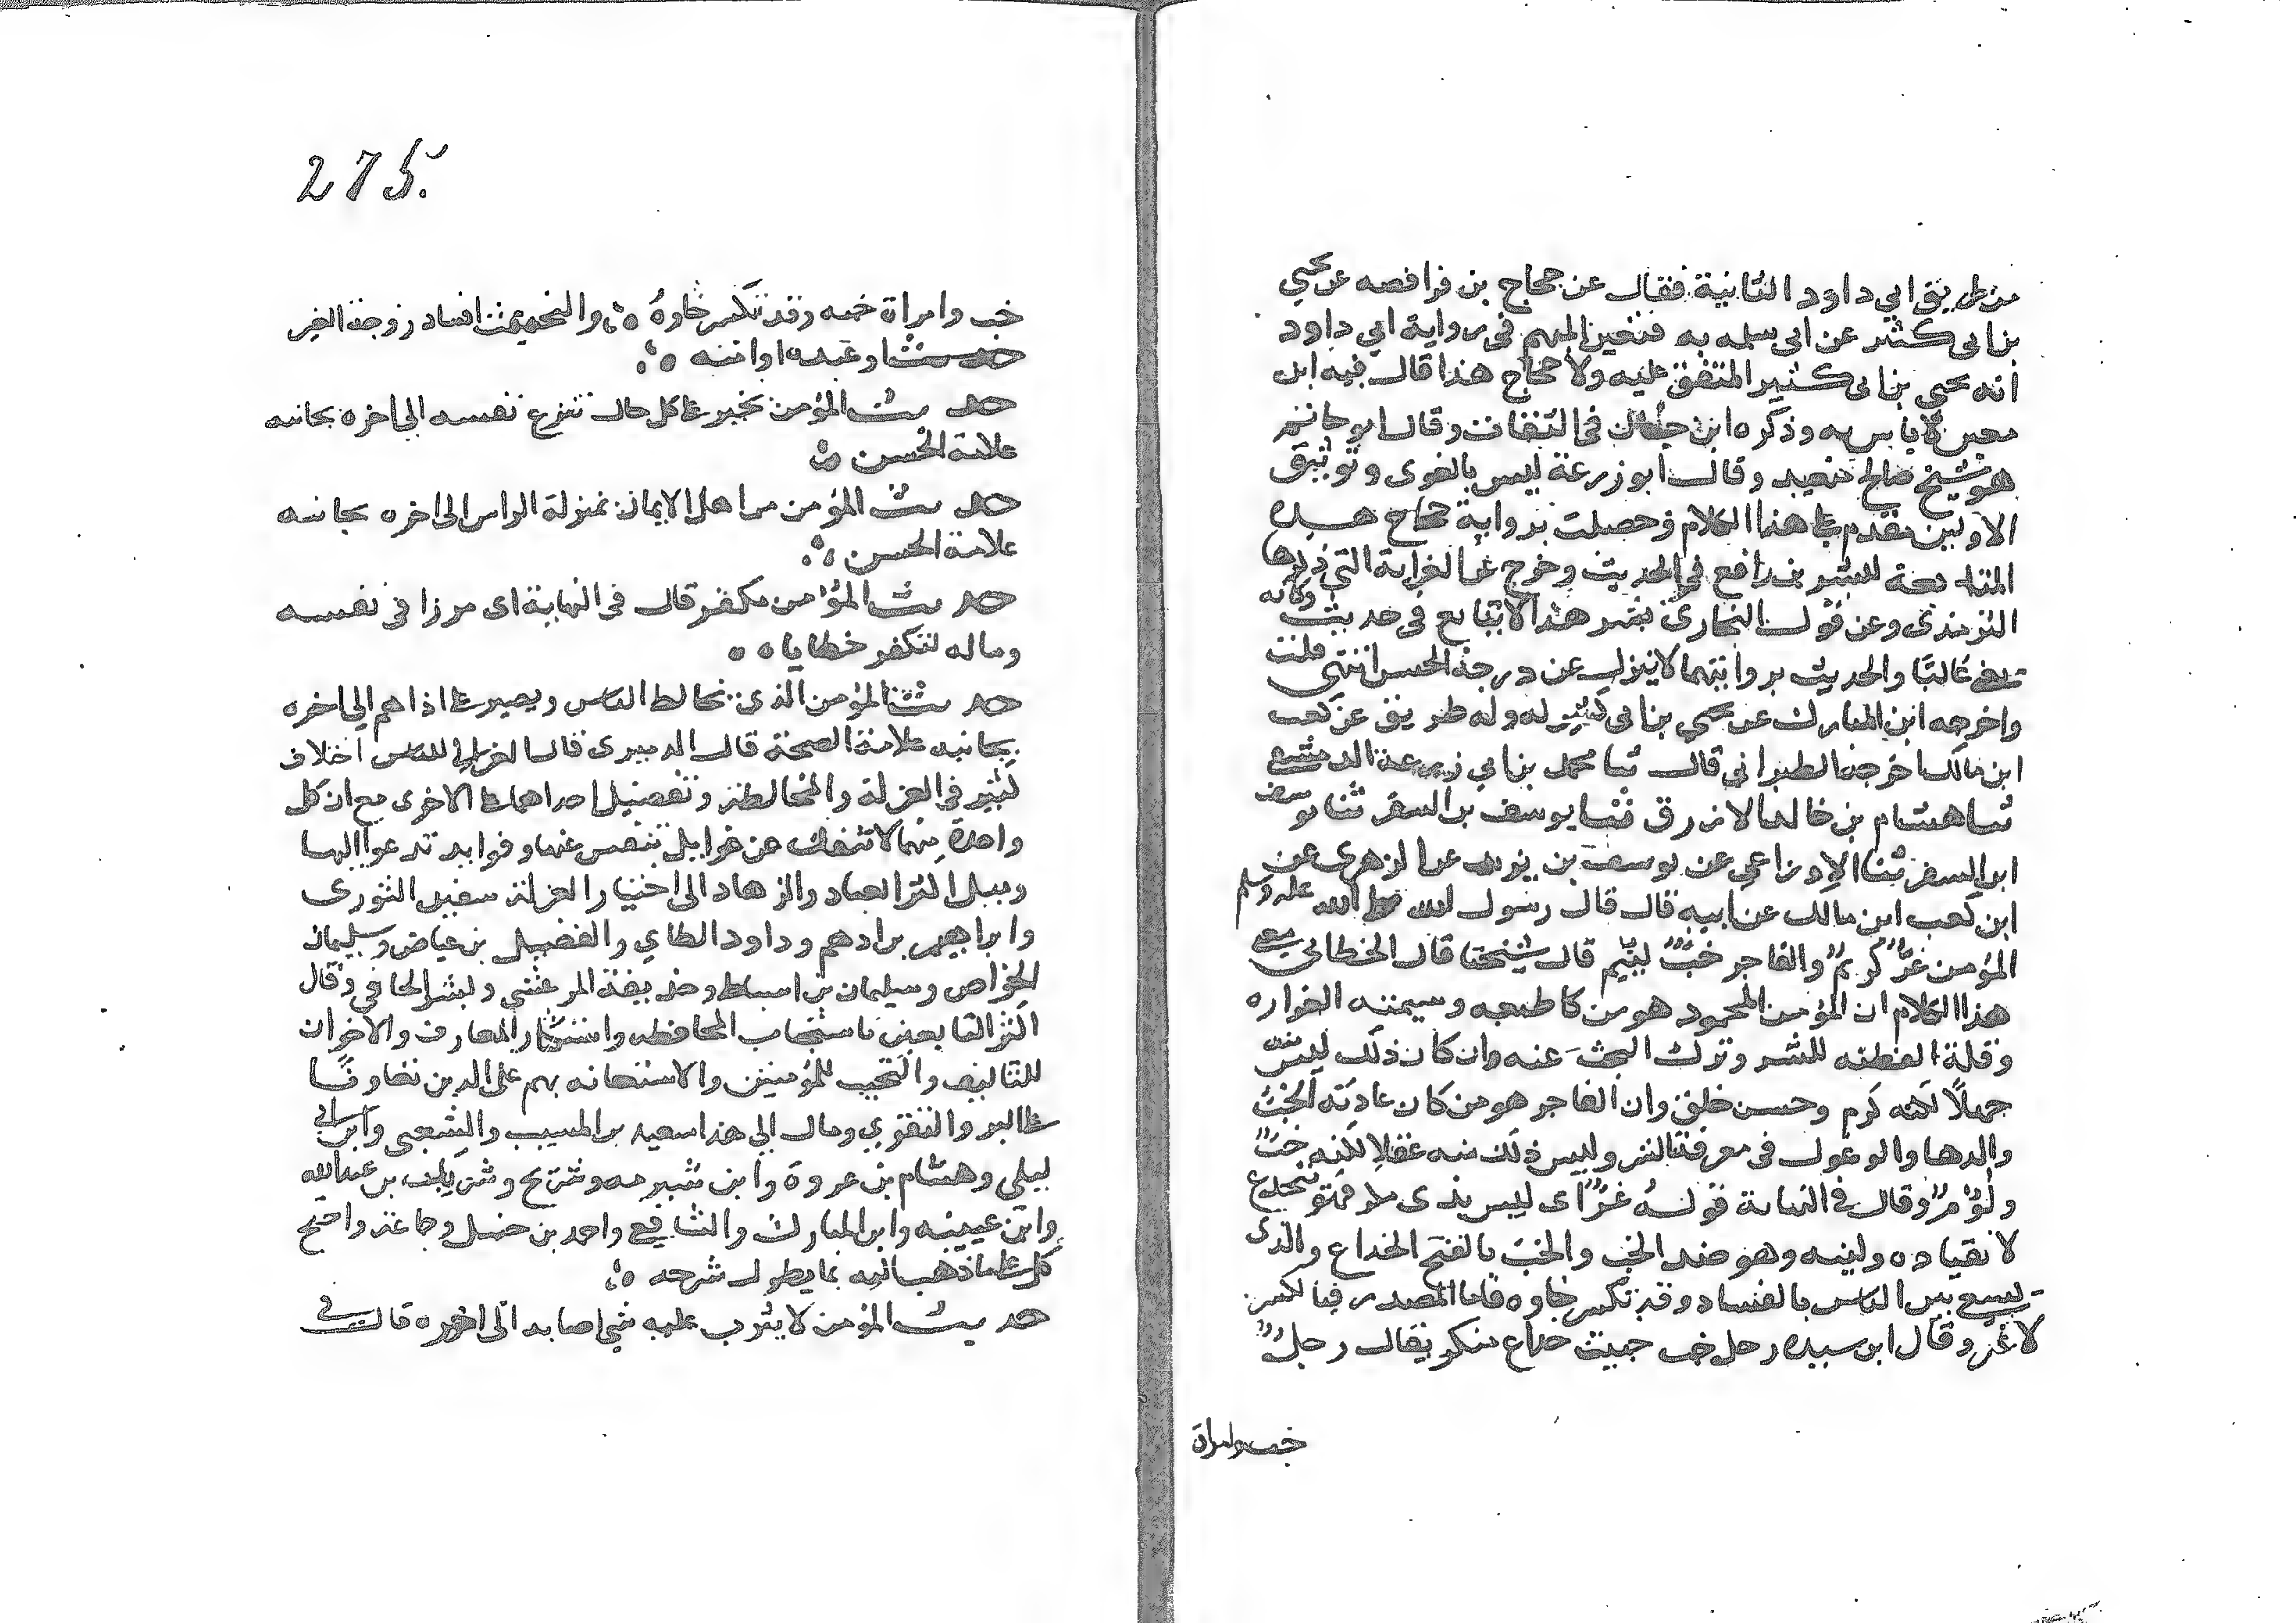 من طريق ابي داود الثانية فقال عن حجاج بن فرافصه عن يحيى
بن ابى كثير عن ابى سلمه به فتعين المبهم في رواية ابي داود
انه يحيى بن ابى كثير المتفق عليه ولا حجاج هذا قال فيه ابن
معين لا باس به وذكره ابن حبان في الثقات وقال ابو حاتم
هو شيخ صالح متعبد وقال ابو زرعة ليس بالقوى وتوثيق
الاولين مقدم على هذا الكلام وحصلت برواية حجاج هذه
المتابعة لبشر بن رافع في الحديث وخرج عن الغرابة التي ذكرها
الترمذى وعن قول البخارى بشر هذا لا يتابع في حديثه وكانه
يعنى غالبًا والحديث بروايتهما لا ينزل عن درجة الحسن انتهى قلت
واخرجه ابن المبارك عن يحيى بن ابى كثير له وله طريق عن كعب
ابن مالك اخرجه الطبرانى قال ثنا محمد بن ابي زرعة الدمشقى
ثنا هشام بن خالد الازرق ثنا يوسف بن السفر ثنا يوسف
ابن السفر ثنا الاوزاعي عن يوسف بن يزيد عن الزهرى عن
ابن كعب ابن مالك عن ابيه قال قال رسول الله صلى الله عليه وسلم
المؤمن غرٌّ كريمٌ والفاجر خبٌّ لئيم قال شيخنا قال الخطابى معنى
هذا الكلام ان المؤمن المحمود هو من كا طبعه وسيمته الغراره
وقلة الفطنه للشر وترك البحث عنه وان كان ذلك ليس منه
جهلًا لكنه كرم وحسن خلق وان الفاجر هو من كان عادته الخبُّ
والدها والوغول في معرفة الشر وليس ذلك منه عقلا لكنه خبٌّ
ولؤمٌ وقال في النهاية قوله غرّ اى ليس بذى مكر فهو ينخدع
لانقياده ولينه وهو ضد الخب والخبّ بالفتح الخداع والذى
يسع بين الناس بالفساد وقد تكسر خاوه فاما المصدر فبا لكسر
لا غير وقال ابن سيده رحل خب خبيث خداع منكر يقال رجلٌ
خب وامراة
275.
خب وامراة خبه وقد تكسر خاوهُ والتخبيث افساد زوجة الغير
او عبده او امته
حديث المؤمن بخير على كل حال تنزع نفسه الى اخره بجانبه
علامة الحسن
حديث المؤمن من اهل الايمان بمنزلة الراس الى اخره بجانبه
علامة الحسن
حديث المؤمن مكفر قال في النهاية اى مرزا في نفسه
وماله لتكفر خطاياه
حديث المؤمن الذى يخالط الناس ويصبر على اذاهم الى اخره
بجانبه علامة الصحة قال الدميرى قال الغزالي للناس اختلاف
كثير في العزلة والمخالطة وتفضيل احداهما على الاخرى مع ان كل
واحدة منهما لا تنفك عن غوايل تنفس عنها وفوايد تدعوا اليها
وميل اكثر العباد والزهاد الى اختيار العزلة سفين الثورى
وابراهيم بن ادهم وداود الطاي والفضيل بن عياض وسليمان
الخواص وسليمان بن اسباط وحذيفة المرعشى وبشر الحافي وقال
اكثر التابعين باستحباب المحافظه واستكثار المعارف والاخوان
للتاليف والتحبب للمؤمنين والاستعانه بهم على الدين تعاونًا
على البر والتقوى ومال الى هذا سعيد بن المسيب والشعبى وابن ابي
ليلى وهشام بن عروة وابن شبرمه وشريح وشريك بن عبدالله
وابن عيينه وابن المبارك والشافعى واحمد بن حنبل وجماعة واحتج
كل على ما ذهب اليه بما يطول شرحه
حديث المؤمن لا يثرب عليه شي اصابه الى اخره قال في